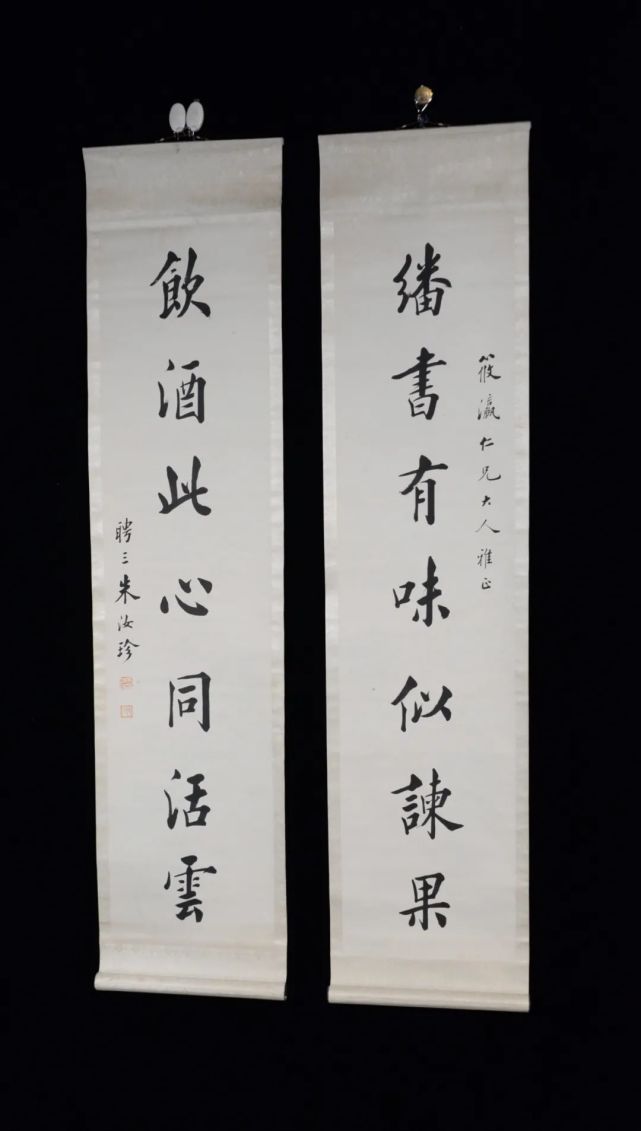 繙書有味似諫果
筱瀛仁兄大人雅正
飲酒此心同活雲
聘三朱汝珍